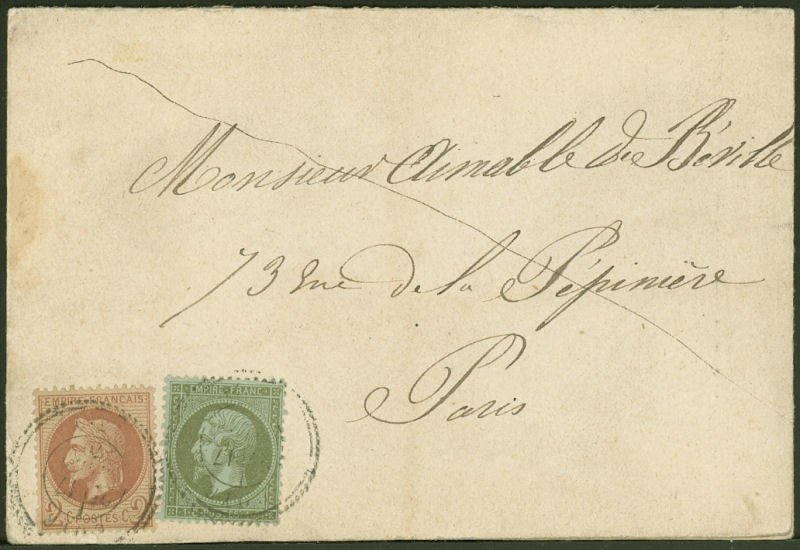 Monsieur Aimable de Béville
73 rue de la Pépinière
Paris
EMPIRE FRANÇAIS
2 C POSTES C. 2
EMPIRE FRANC